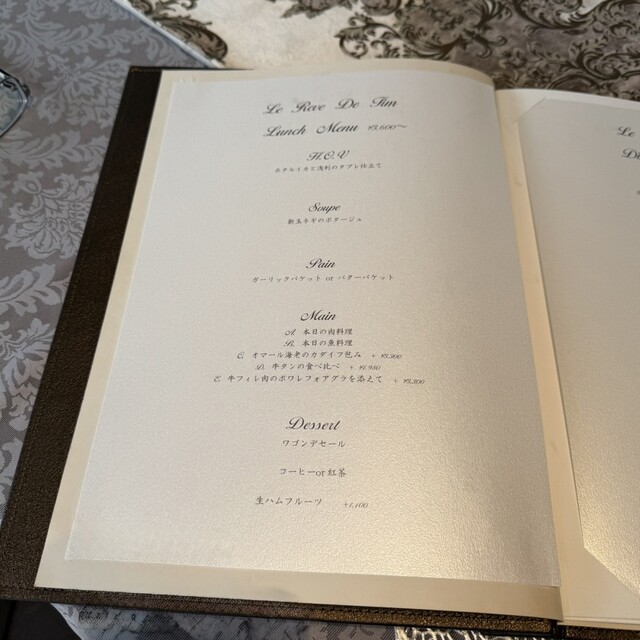 Le Reve De Tim
Lunch Menu ¥3,600～
H.O.V
ホタルイカと浅利のタブレ仕立て
Soupe
新玉ネギのポタージュ
Pain
ガーリックバケット or バターバケット
Main
A. 本日の肉料理
B. 本日の魚料理
C. オマール海老のカダイフ包み + ¥3,300
D. 牛タンの食べ比べ + ¥1,980
E. 牛フィレ肉のポワレフォアグラを添えて + ¥3,300
Dessert
ワゴンデセール
コーヒーor紅茶
生ハムフルーツ +1,100
Le